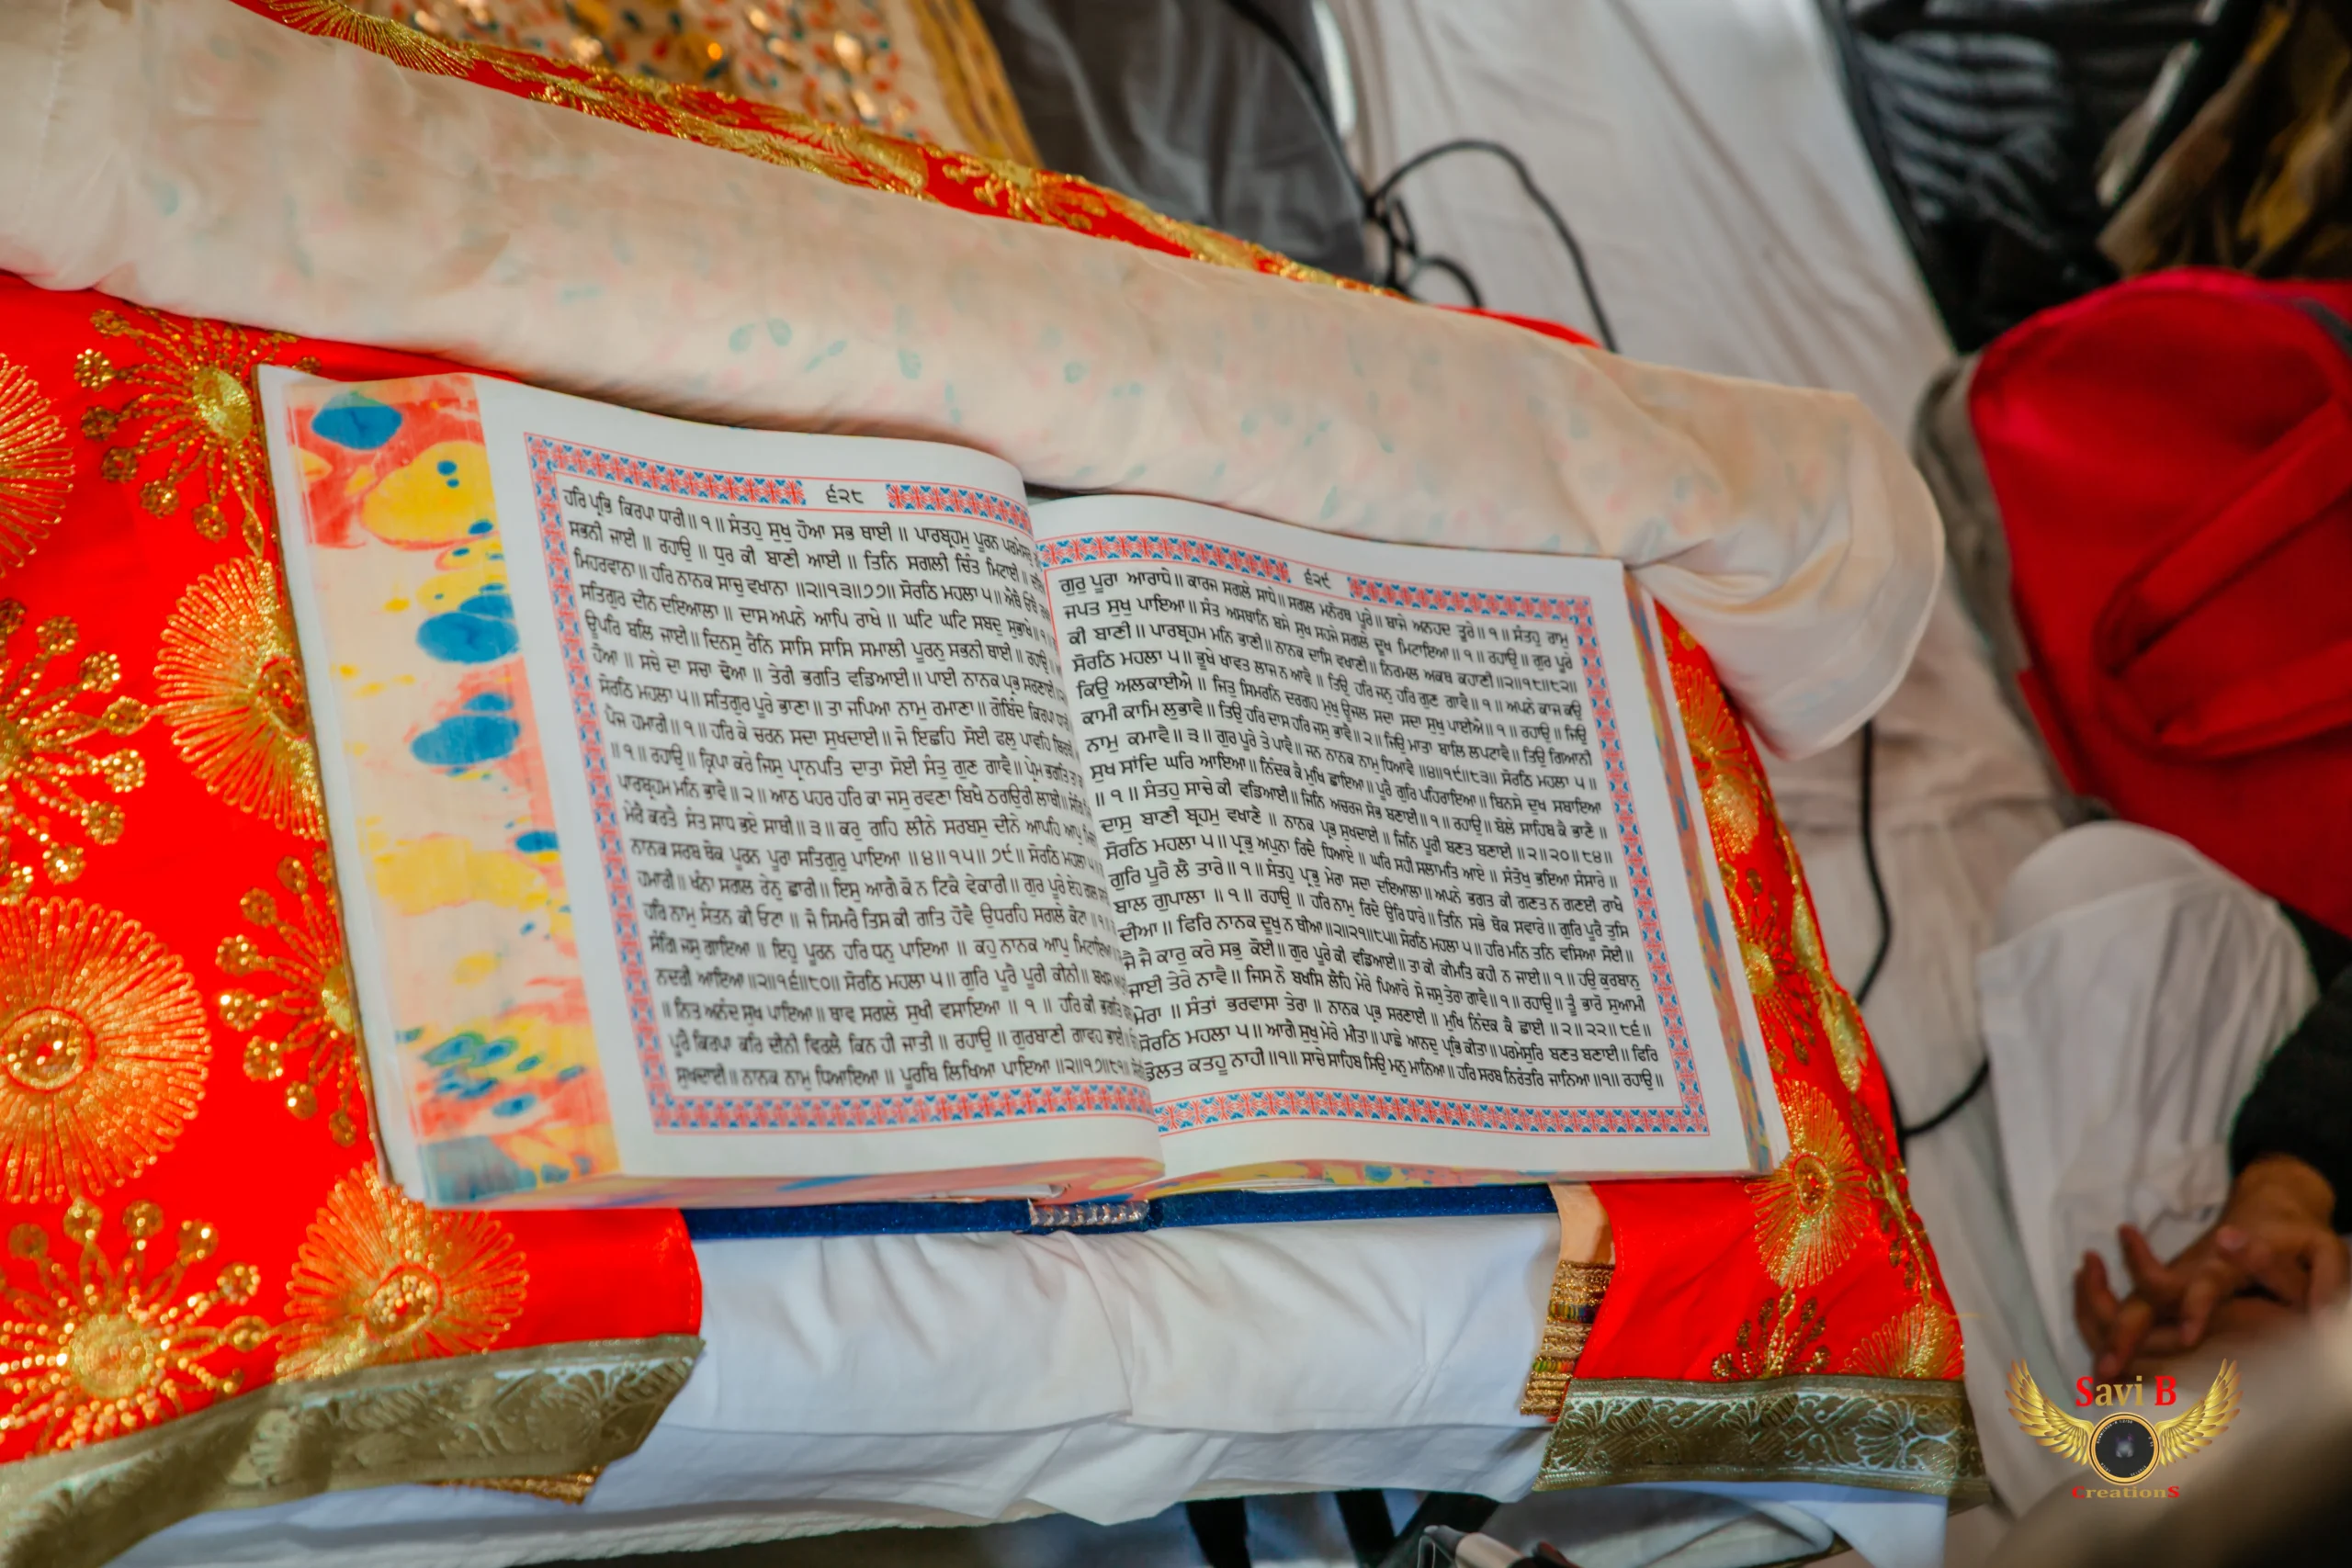 ੬੨੮
ਹਰਿ ਪ੍ਰਭਿ ਕਿਰਪਾ ਧਾਰੀ॥੧॥ ਸੰਤਹੁ ਸੁਖੁ ਹੋਆ ਸਭ ਥਾਈ॥ ਪਾਰਬ੍ਰਹਮੁ ਪੂਰਨ ਪਰਮੇਸਰੁ
ਸਭਨੀ ਜਾਈ॥ ਰਹਾਉ॥ ਧੁਰ ਕੀ ਬਾਣੀ ਆਈ॥ ਤਿਨਿ ਸਗਲੀ ਚਿੰਤ ਮਿਟਾਈ॥
ਮਿਹਰਵਾਨਾ॥ ਹਰਿ ਨਾਨਕ ਸਾਚੁ ਵਖਾਨਾ॥੨॥੧੩॥੭੭॥ ਸੋਰਠਿ ਮਹਲਾ ੫॥ ਐਥੈ ਓਥੈ
ਸਤਿਗੁਰ ਦੀਨ ਦਇਆਲਾ॥ ਦਾਸ ਅਪਨੇ ਆਪਿ ਰਾਖੇ॥ ਘਟਿ ਘਟਿ ਸਬਦੁ ਸੁਭਾਖੇ॥੧॥
ਊਪਰਿ ਬਲਿ ਜਾਈ॥ ਦਿਨਸੁ ਰੈਨਿ ਸਾਸਿ ਸਾਸਿ ਸਮਾਲੀ ਪੂਰਨੁ ਸਭਨੀ ਥਾਈ॥ ਰਹਾਉ॥
ਹੋਆ॥ ਸਚੇ ਦਾ ਸਚਾ ਢੋਆ॥ ਤੇਰੀ ਭਗਤਿ ਵਡਿਆਈ॥ ਪਾਈ ਨਾਨਕ ਪ੍ਰਭ ਸਰਣਾਈ
ਸੋਰਠਿ ਮਹਲਾ ੫॥ ਸਤਿਗੁਰ ਪੂਰੇ ਭਾਣਾ॥ ਤਾ ਜਪਿਆ ਨਾਮੁ ਰਮਾਣਾ॥ ਗੋਬਿੰਦ ਕਿਰਪਾ ਧਾਰੀ
ਪੈਜ ਹਮਾਰੀ॥੧॥ ਹਰਿ ਕੇ ਚਰਨ ਸਦਾ ਸੁਖਦਾਈ॥ ਜੋ ਇਛਹਿ ਸੋਈ ਫਲੁ ਪਾਵਹਿ
॥੧॥ ਰਹਾਉ॥ ਕ੍ਰਿਪਾ ਕਰੇ ਜਿਸੁ ਪ੍ਰਾਨਪਤਿ ਦਾਤਾ ਸੋਈ ਸੰਤੁ ਗੁਣ ਗਾਵੈ॥ ਪ੍ਰੇਮ ਭਗਤਿ ਤਾ ਕਾ
ਪਾਰਬ੍ਰਹਮ ਮਨਿ ਭਾਵੈ॥੨॥ ਆਠ ਪਹਰ ਹਰਿ ਕਾ ਜਸੁ ਰਵਣਾ ਬਿਖੈ ਠਗਉਰੀ ਲਾਥੀ॥
ਮੇਰੈ ਕਰਤੈ ਸੰਤ ਸਾਧ ਭਏ ਸਾਥੀ॥੩॥ ਕਰੁ ਗਹਿ ਲੀਨੇ ਸਰਬਸੁ ਦੀਨੇ ਆਪਹਿ ਆਪੁ
ਨਾਨਕ ਸਰਬ ਥੋਕ ਪੂਰਨ ਪੂਰਾ ਸਤਿਗੁਰੁ ਪਾਇਆ॥੪॥੧੫॥੭੯॥ ਸੋਰਠਿ ਮਹਲਾ ੫॥
ਹਮਾਰੀ॥ ਖੰਨਾ ਸਗਲ ਰੇਨੁ ਛਾਰੀ॥ ਇਸੁ ਆਗੈ ਕੋ ਨ ਟਿਕੈ ਵੇਕਾਰੀ॥ ਗੁਰ ਪੂਰੇ ਏਹ ਗਲ
ਹਰਿ ਨਾਮੁ ਸੰਤਨ ਕੀ ਓਟਾ॥ ਜੋ ਸਿਮਰੈ ਤਿਸ ਕੀ ਗਤਿ ਹੋਵੈ ਉਧਰਹਿ ਸਗਲੇ ਕੋਟਾ॥੧॥
ਸੰਗਿ ਜਸੁ ਗਾਇਆ॥ ਇਹੁ ਪੂਰਨ ਹਰਿ ਧਨੁ ਪਾਇਆ॥ ਕਹੁ ਨਾਨਕ ਆਪੁ ਮਿਟਾਇਆ
ਨਦਰੀ ਆਇਆ॥੨॥੧੬॥੮੦॥ ਸੋਰਠਿ ਮਹਲਾ ੫॥ ਗੁਰਿ ਪੂਰੈ ਪੂਰੀ ਕੀਨੀ॥
॥ ਨਿਤ ਅਨੰਦ ਸੁਖ ਪਾਇਆ॥ ਥਾਵ ਸਗਲੇ ਸੁਖੀ ਵਸਾਇਆ॥੧॥ ਹਰਿ ਕੀ ਭਗਤਿ
ਪੂਰੈ ਕਿਰਪਾ ਕਰਿ ਦੀਨੀ ਵਿਰਲੈ ਕਿਨ ਹੀ ਜਾਤੀ॥ ਰਹਾਉ॥ ਗੁਰਬਾਣੀ ਗਾਵਹ ਭਾਈ॥
ਸੁਖਦਾਈ॥ ਨਾਨਕ ਨਾਮੁ ਧਿਆਇਆ॥ ਪੂਰਬਿ ਲਿਖਿਆ ਪਾਇਆ॥੨॥੧੭॥੮੧॥
੬੨੯
ਗੁਰੁ ਪੂਰਾ ਆਰਾਧੇ॥ ਕਾਰਜ ਸਗਲੇ ਸਾਧੇ॥ ਸਗਲ ਮਨੋਰਥ ਪੂਰੇ॥ ਬਾਜੇ ਅਨਹਦ ਤੂਰੇ॥੧॥ ਸੰਤਹੁ ਰਾਮੁ
ਜਪਤ ਸੁਖੁ ਪਾਇਆ॥ ਸੰਤ ਅਸਥਾਨਿ ਬਸੇ ਸੁਖ ਸਹਜੇ ਸਗਲੇ ਦੂਖ ਮਿਟਾਇਆ॥੧॥ ਰਹਾਉ॥ ਗੁਰ ਪੂਰੇ
ਕੀ ਬਾਣੀ॥ ਪਾਰਬ੍ਰਹਮ ਮਨਿ ਭਾਣੀ॥ ਨਾਨਕ ਦਾਸਿ ਵਖਾਣੀ॥ ਨਿਰਮਲ ਅਕਥ ਕਹਾਣੀ॥੨॥੧੮॥੮੨॥
ਸੋਰਠਿ ਮਹਲਾ ੫॥ ਭੂਖੇ ਖਾਵਤ ਲਾਜ ਨ ਆਵੈ॥ ਤਿਉ ਹਰਿ ਜਨੁ ਹਰਿ ਗੁਣ ਗਾਵੈ॥੧॥ ਅਪਨੇ ਕਾਜ ਕਉ
ਕਿਉ ਅਲਕਾਈਐ॥ ਜਿਤੁ ਸਿਮਰਨਿ ਦਰਗਹ ਮੁਖੁ ਊਜਲ ਸਦਾ ਸਦਾ ਸੁਖੁ ਪਾਈਐ॥੧॥ ਰਹਾਉ॥ ਜਿਉ
ਕਾਮੀ ਕਾਮਿ ਲੁਭਾਵੈ॥ ਤਿਉ ਹਰਿ ਦਾਸ ਹਰਿ ਜਸੁ ਭਾਵੈ॥੨॥ ਜਿਉ ਮਾਤਾ ਬਾਲਿ ਲਪਟਾਵੈ॥ ਤਿਉ ਗਿਆਨੀ
ਨਾਮੁ ਕਮਾਵੈ॥੩॥ ਗੁਰ ਪੂਰੇ ਤੇ ਪਾਵੈ॥ ਜਨ ਨਾਨਕ ਨਾਮੁ ਧਿਆਵੈ॥੪॥੧੯॥੮੩॥ ਸੋਰਠਿ ਮਹਲਾ ੫॥
ਸੁਖ ਸਾਂਦਿ ਘਰਿ ਆਇਆ॥ ਨਿੰਦਕ ਕੈ ਮੁਖਿ ਛਾਇਆ॥ ਪੂਰੈ ਗੁਰਿ ਪਹਿਰਾਇਆ॥ ਬਿਨਸੇ ਦੁਖ ਸਬਾਇਆ
॥੧॥ ਸੰਤਹੁ ਸਾਚੇ ਕੀ ਵਡਿਆਈ॥ ਜਿਨਿ ਅਚਰਜ ਸੋਭ ਬਣਾਈ॥੧॥ ਰਹਾਉ॥ ਬੋਲੇ ਸਾਹਿਬ ਕੈ ਭਾਣੈ॥
ਦਾਸੁ ਬਾਣੀ ਬ੍ਰਹਮੁ ਵਖਾਣੈ॥ ਨਾਨਕ ਪ੍ਰਭ ਸੁਖਦਾਈ॥ ਜਿਨਿ ਪੂਰੀ ਬਣਤ ਬਣਾਈ॥੨॥੨੦॥੮੪॥
ਸੋਰਠਿ ਮਹਲਾ ੫॥ ਪ੍ਰਭੁ ਅਪੁਨਾ ਰਿਦੈ ਧਿਆਏ॥ ਘਰਿ ਸਹੀ ਸਲਾਮਤਿ ਆਏ॥ ਸੰਤੋਖੁ ਭਇਆ ਸੰਸਾਰੇ॥
ਗੁਰਿ ਪੂਰੈ ਲੈ ਤਾਰੇ॥੧॥ ਸੰਤਹੁ ਪ੍ਰਭੁ ਮੇਰਾ ਸਦਾ ਦਇਆਲਾ॥ ਅਪਨੇ ਭਗਤ ਕੀ ਗਣਤ ਨ ਗਣਈ ਰਾਖੈ
ਬਾਲ ਗੁਪਾਲਾ॥੧॥ ਰਹਾਉ॥ ਹਰਿ ਨਾਮੁ ਰਿਦੈ ਉਰਿ ਧਾਰੇ॥ ਤਿਨਿ ਸਭੇ ਥੋਕ ਸਵਾਰੇ॥ ਗੁਰਿ ਪੂਰੈ ਤੁਸਿ
ਦੀਆ॥ ਫਿਰਿ ਨਾਨਕ ਦੂਖੁ ਨ ਥੀਆ॥੨॥੨੧॥੮੫॥ ਸੋਰਠਿ ਮਹਲਾ ੫॥ ਹਰਿ ਮਨਿ ਤਨਿ ਵਸਿਆ ਸੋਈ॥
ਜੈ ਜੈ ਕਾਰੁ ਕਰੇ ਸਭੁ ਕੋਈ॥ ਗੁਰ ਪੂਰੇ ਕੀ ਵਡਿਆਈ॥ ਤਾ ਕੀ ਕੀਮਤਿ ਕਹੀ ਨ ਜਾਈ॥੧॥ ਹਉ ਕੁਰਬਾਨੁ
ਜਾਈ ਤੇਰੇ ਨਾਵੈ॥ ਜਿਸ ਨੋ ਬਖਸਿ ਲੈਹਿ ਮੇਰੇ ਪਿਆਰੇ ਸੋ ਜਸੁ ਤੇਰਾ ਗਾਵੈ॥੧॥ ਰਹਾਉ॥ ਤੂੰ ਭਾਰੋ ਸੁਆਮੀ
ਮੇਰਾ॥ ਸੰਤਾਂ ਭਰਵਾਸਾ ਤੇਰਾ॥ ਨਾਨਕ ਪ੍ਰਭ ਸਰਣਾਈ॥ ਮੁਖਿ ਨਿੰਦਕ ਕੈ ਛਾਈ॥੨॥੨੨॥੮੬॥
ਸੋਰਠਿ ਮਹਲਾ ੫॥ ਆਗੈ ਸੁਖੁ ਮੇਰੇ ਮੀਤਾ॥ ਪਾਛੇ ਆਨਦੁ ਪ੍ਰਭਿ ਕੀਤਾ॥ ਪਰਮੇਸੁਰਿ ਬਣਤ ਬਣਾਈ॥ ਫਿਰਿ
ਡੋਲਤ ਕਤਹੂ ਨਾਹੀ॥੧॥ ਸਾਚੇ ਸਾਹਿਬ ਸਿਉ ਮਨੁ ਮਾਨਿਆ॥ ਹਰਿ ਸਰਬ ਨਿਰੰਤਰਿ ਜਾਨਿਆ॥੧॥ ਰਹਾਉ॥
Savi B
CreationS